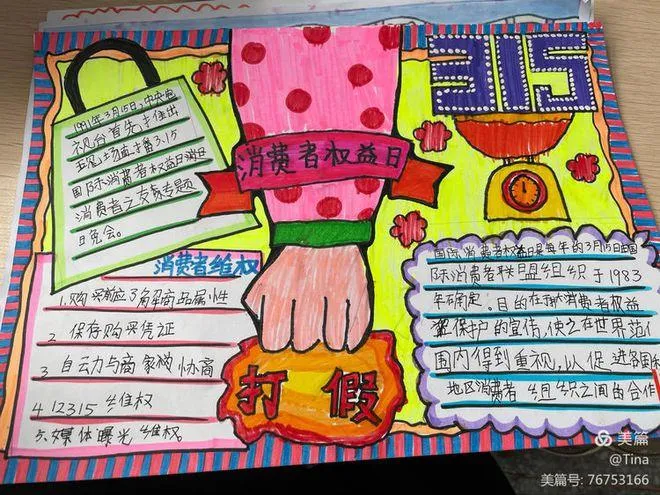 315
消费者权益日
1991年3月15日,中央电
视台首先推出
现场直播3.15
国际消费者权益日消
消费者之友专题
晚会。
消费者维权
1.购买前应了解商品属性
2 保存购买凭证
3 自动与商家协商
4 12315维权
5、媒体曝光维权。
打假
国际消费者权益日是每年的3月15日由国
际消费者联盟组织于1983
年确定。目的在扩大消费者权益
保护的宣传,使之在世界范
围内得到重视,以促进各国和
地区消费者组织之间的合作
美篇
@Tina
美篇号: 76753166